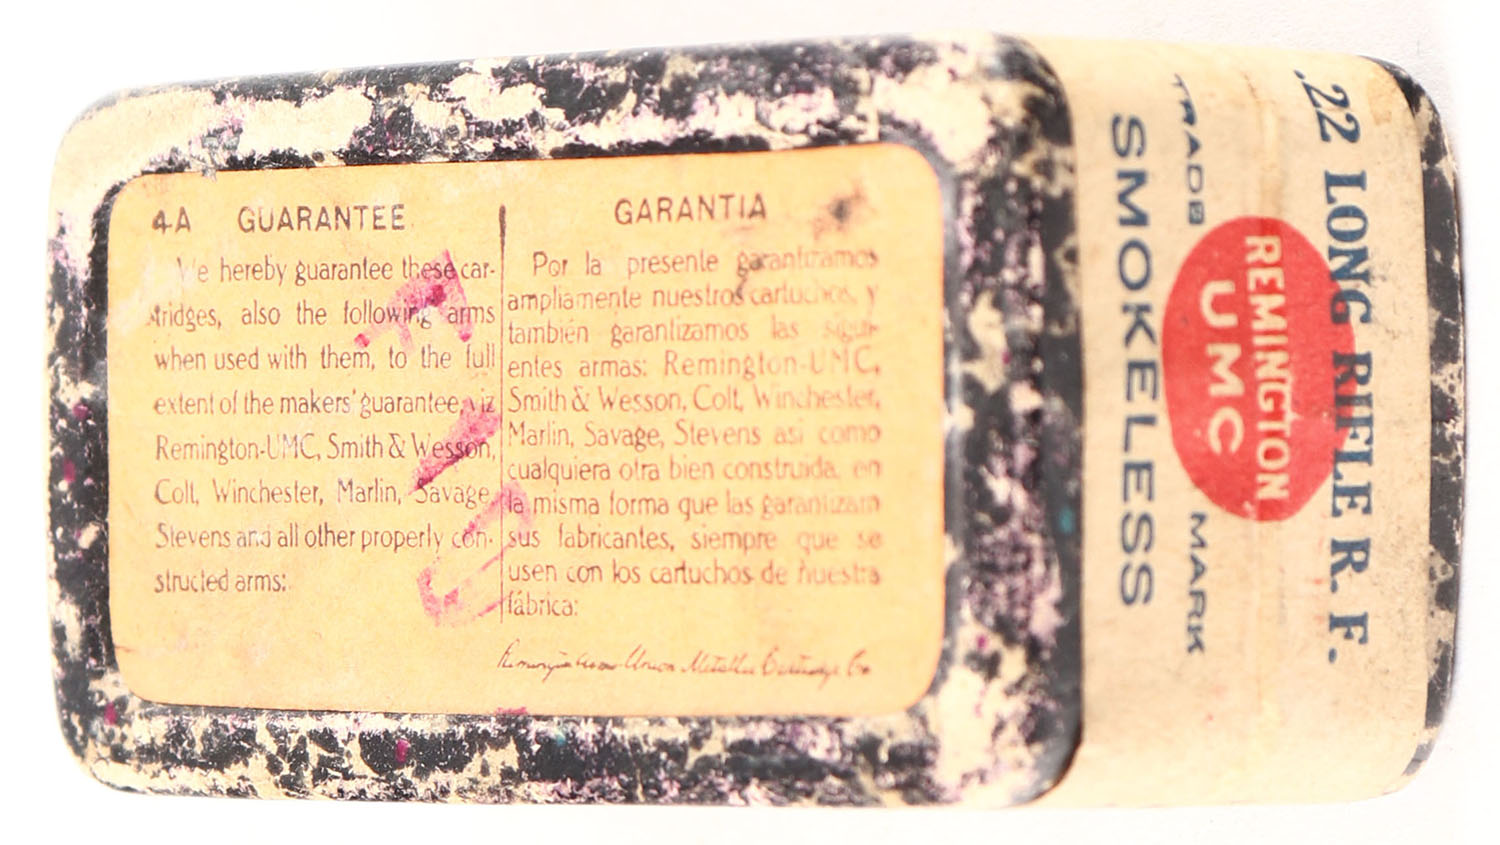 4A GUARANTEE
We hereby guarantee these car-
tridges, also the following arms
when used with them, to the full
extent of the makers' guarantee, viz
Remington-UMC, Smith & Wesson,
Colt, Winchester, Marlin, Savage,
Stevens and all other properly con-
structed arms:
GARANTIA
Por la presente garantizamos
ampliamente nuestros cartuchos, y
también garantizamos las sigui-
entes armas: Remington-UMC,
Smith & Wesson, Colt, Winchester,
Marlin, Savage, Stevens asi como
cualquiera otra bien construida, en
la misma forma que las garantizam
sus fabricantes, siempre que se
usen con los cartuchos de nuestra
fábrica:
Remington Arms-Union Metallic Cartridge Co
.22 LONG RIFLE R. F.
REMINGTON
UMC
TRADE MARK
SMOKELESS